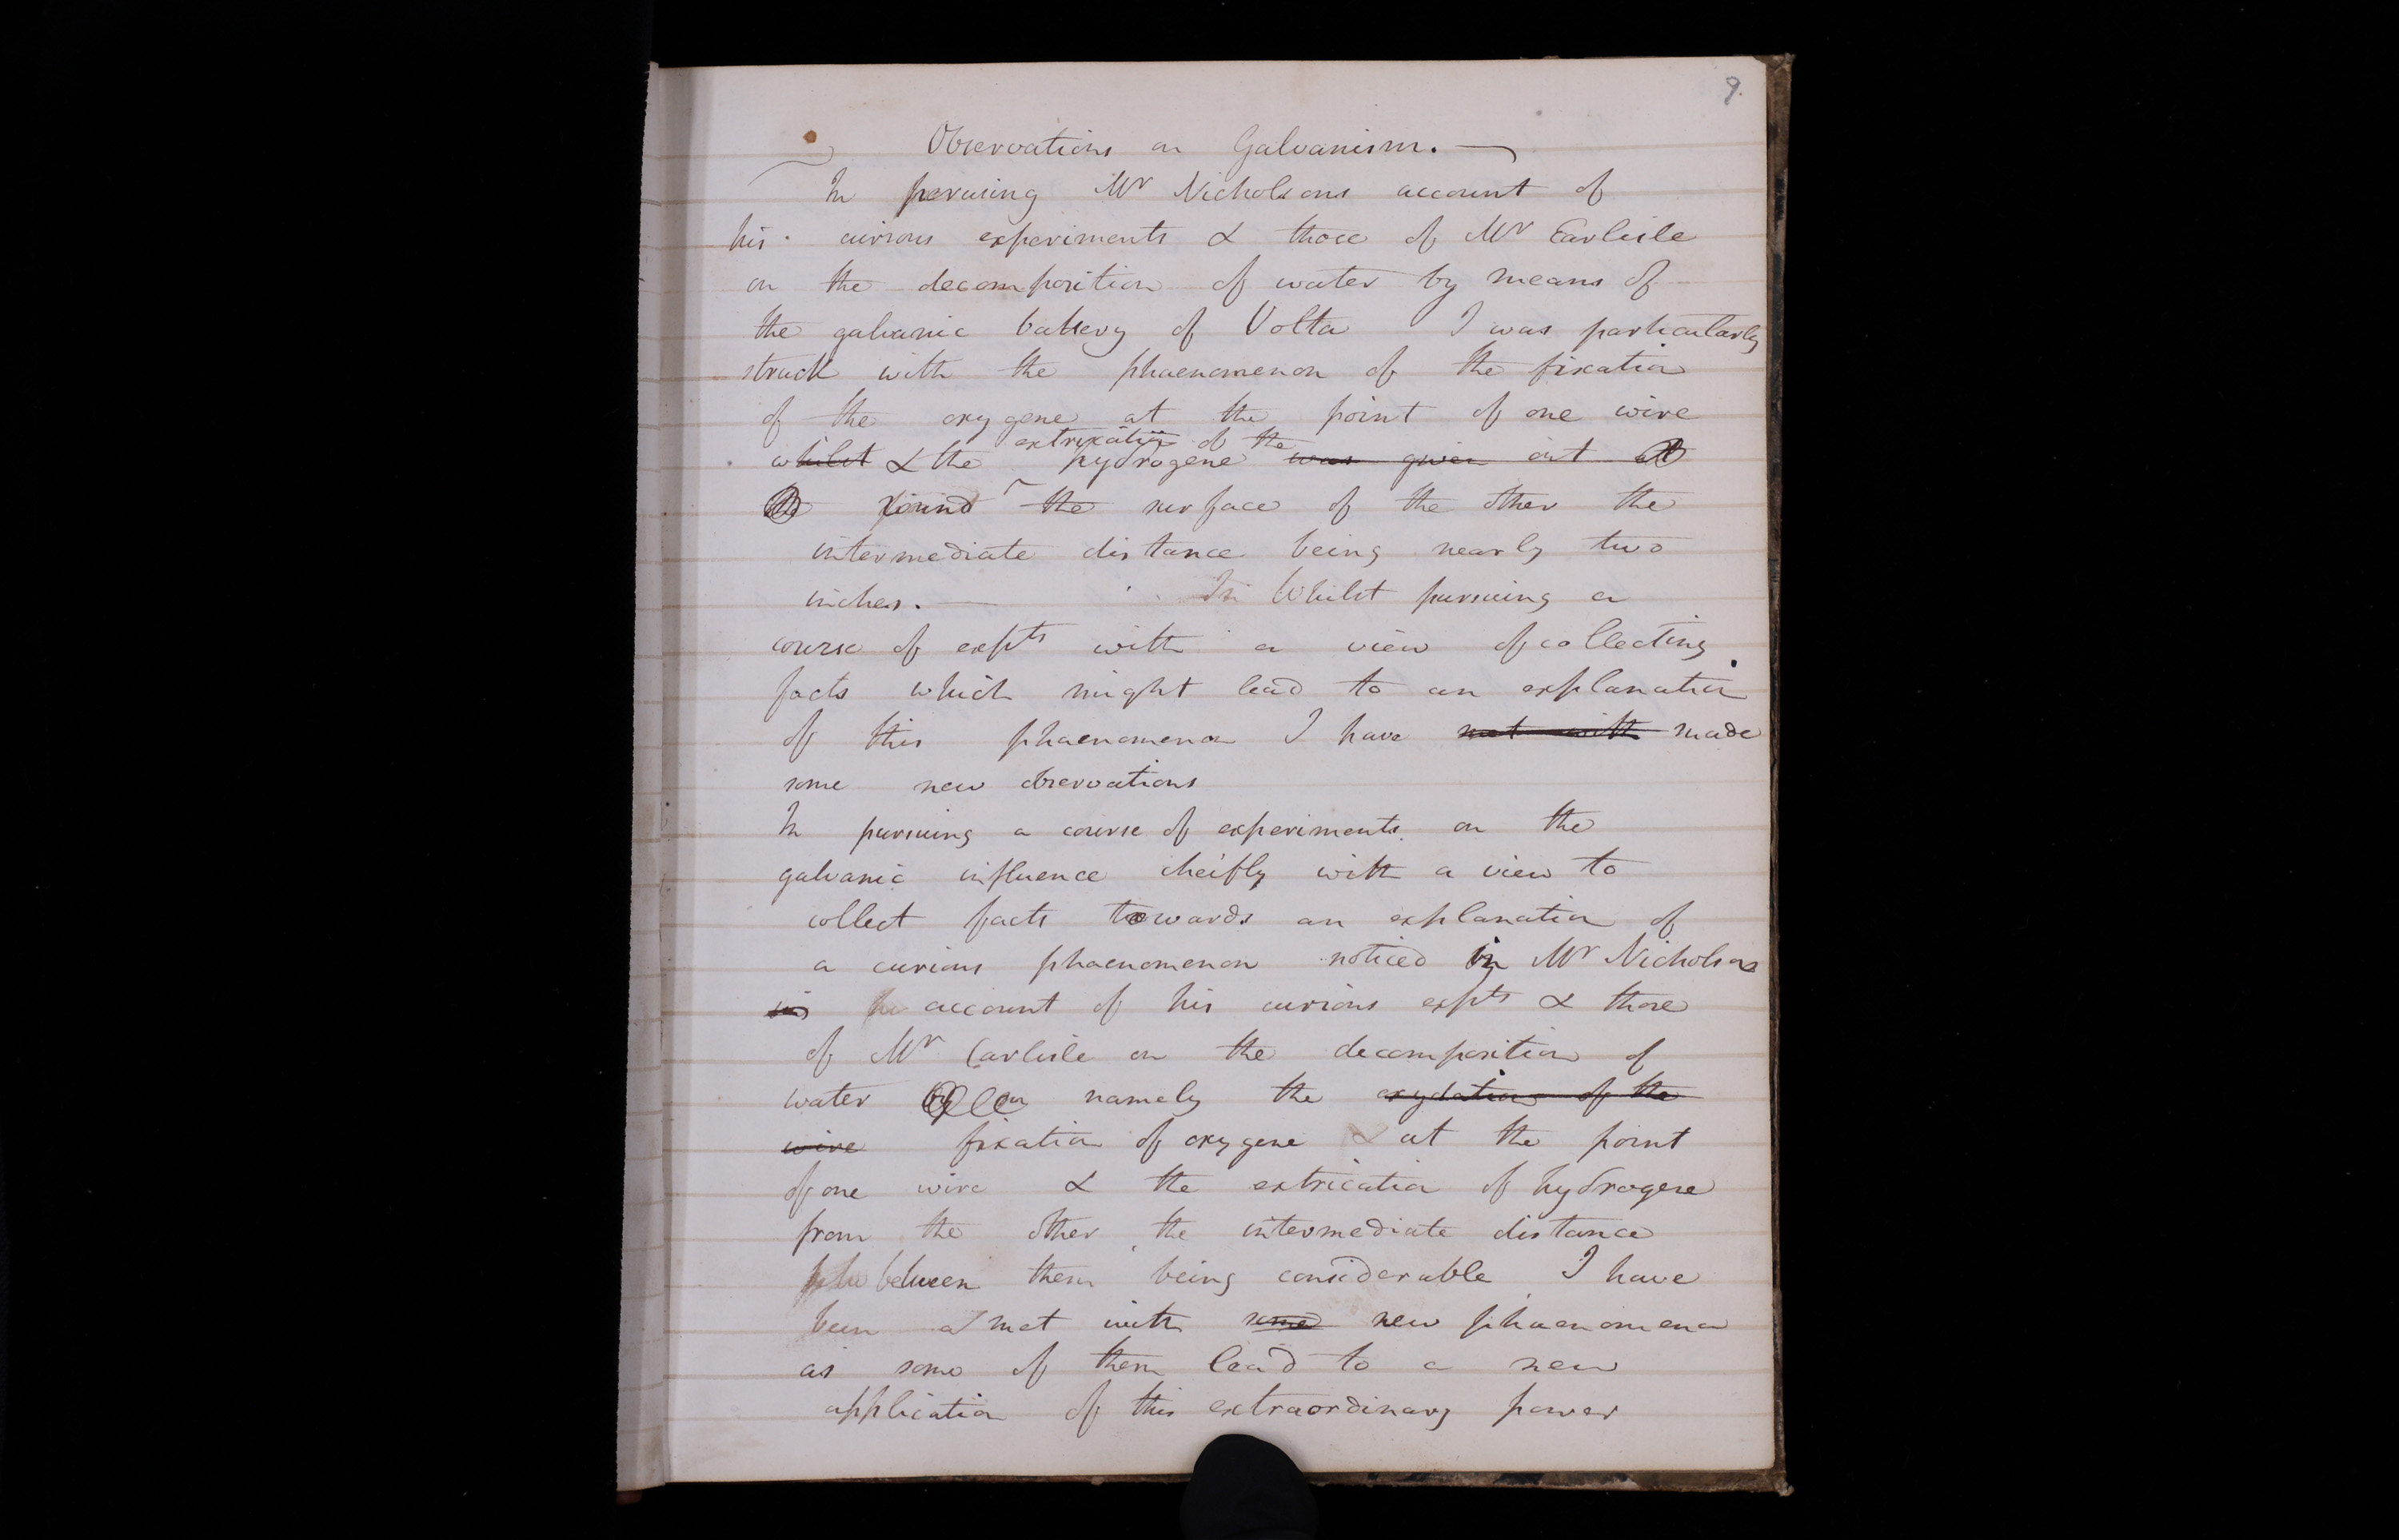 9.
Observations on Galvanism. —
In perusing Mr Nicholsons account of
his curious experiments & those of Mr Carlisle
on the decomposition of water by means of
the galvanic battery of Volta I was particularly
struck with the phaenomenon of the fixation
of the oxygene at the point of one wire
extrication of the
whilst & the hydrogene was given out
round the surface of the other the
intermediate distance being nearly two
inches. — In Whilst pursuing a
course of expts with a view of collecting
facts which might lead to an explanation
of this phaenomenon I have met with made
some new observations
In pursuing a course of experiments on the
galvanic influence cheifly with a view to
collect facts towards an explanation of
a curious phaenomenon noticed in Mr Nicholsons
in account of his curious expts & those
of Mr Carlisle on the decomposition of
water namely the oxydation of the
wire fixation of oxygene & at the point
of one wire & the extrication of hydrogene
from the other the intermediate distance
between them being considerable I have
been met with some new phaenomena
as some of them lead to a new
application of this extraordinary power